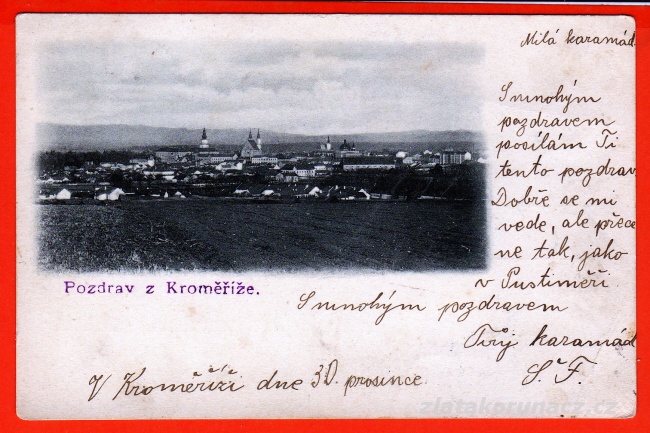 Milá karamád
S mnohým
pozdravem
posílám Ti
tento pozdrav
Dobře se mi
vede, ale přece
ne tak, jako
v Pustiměři.
S mnohým pozdravem
Tvůj karamád
S. F.
Pozdrav z Kroměříže.
V Kroměříži dne 30. prosince.
zlatakorunacz.cz